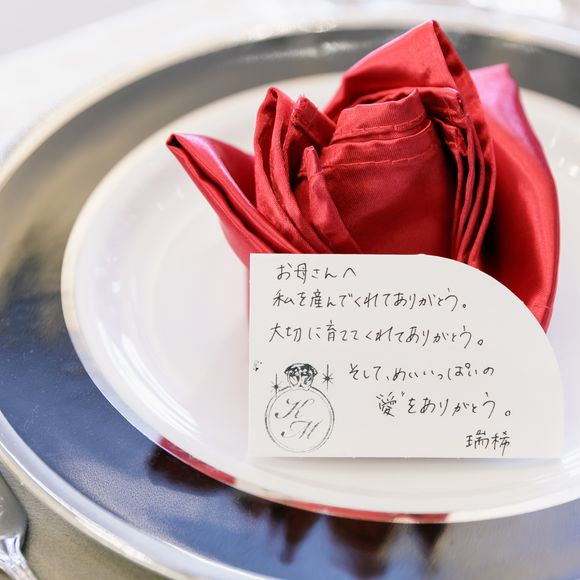 お母さんへ
私を産んでくれてありがとう。
大切に育ててくれてありがとう。
そして、めいいっぱいの
"愛"をありがとう。
瑞稀
K
M